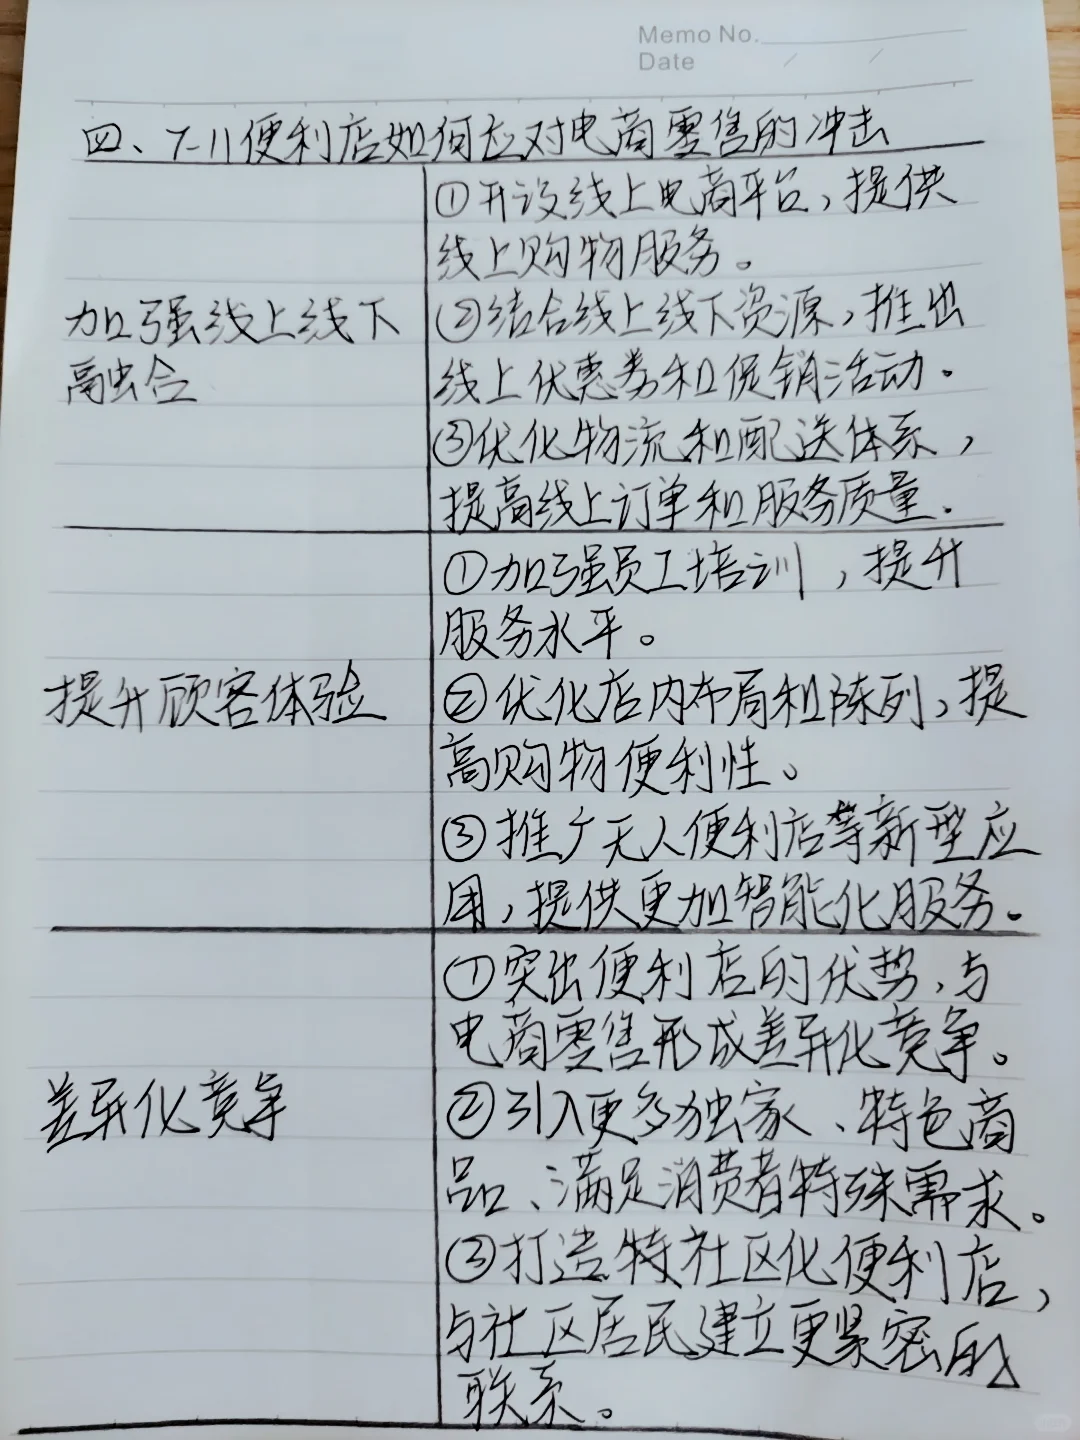 Memo No.
Date / /
四、7-11便利店如何应对电商零售的冲击
①开设线上电商平台,提供
线上购物服务。
加强线上线下
融合
②结合线上线下资源,推出
线上优惠券和促销活动.
③优化物流和配送体系,
提高线上订单和服务质量.
①加强员工培训,提升
服务水平。
提升顾客体验
②优化店内布局和陈列,提
高购物便利性。
③推广无人便利店等新型应
用,提供更加智能化服务.
①突出便利店的优势,与
电商零售形成差异化竞争。
差异化竞争
②引入更多独家、特色商
品、满足消费者特殊需求。
③打造特社区化便利店,
与社区居民建立更紧密的
联系。